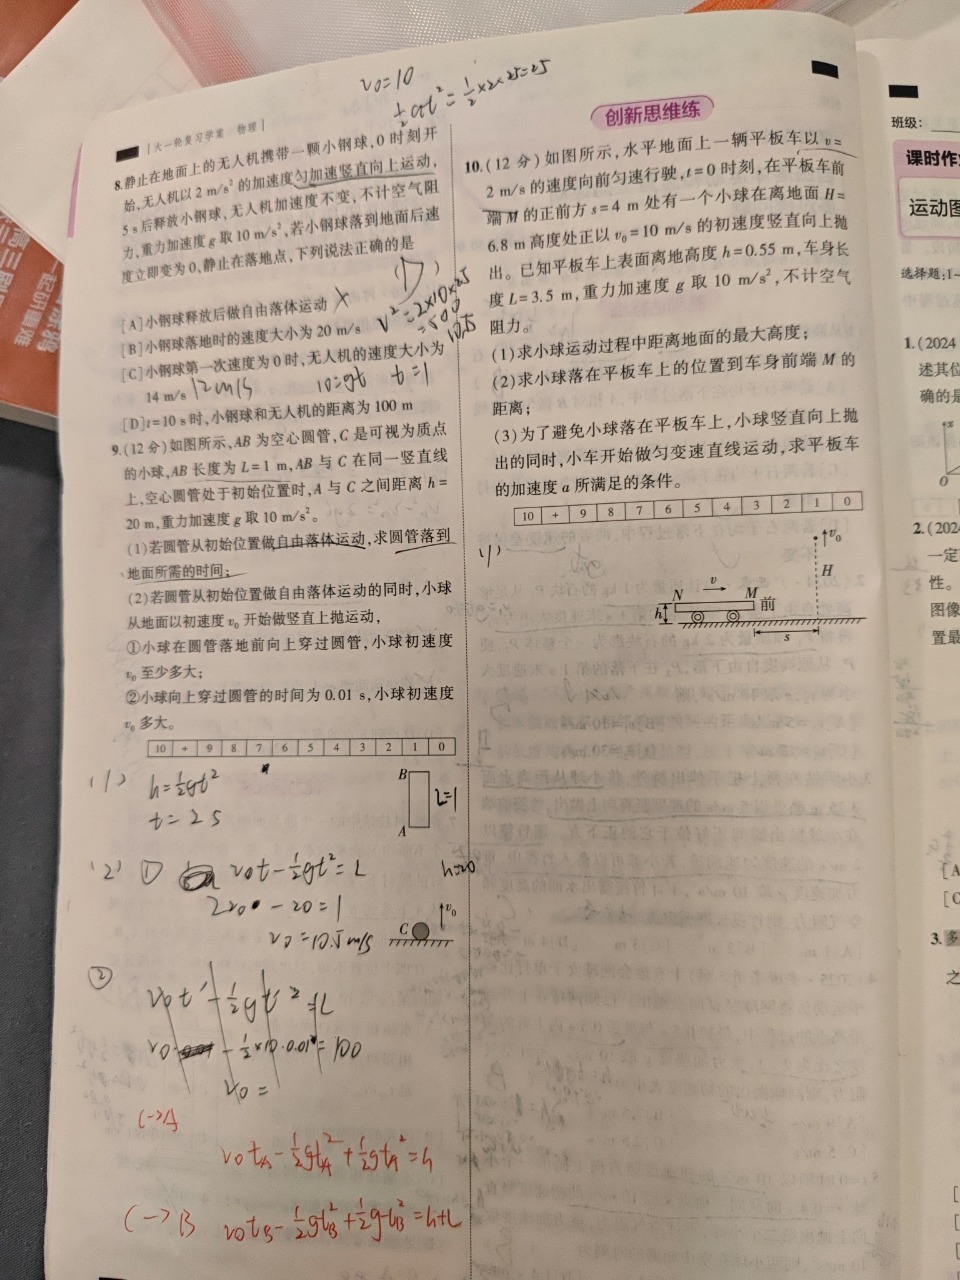 v0=10
½at²=½×2×25=25
| 大一轮复习学案 物理 |
8.静止在地面上的无人机携带一颗小钢球,0时刻开
始,无人机以2 m/s²的加速度匀加速竖直向上运动,
5 s后释放小钢球,无人机加速度不变,不计空气阻
力,重力加速度g取10 m/s²,若小钢球落到地面后速
度立即变为0,静止在落地点,下列说法正确的是
(D)
[A]小钢球释放后做自由落体运动 ×
[B]小钢球落地时的速度大小为20 m/s
v²=2×10×25
=500
10√5
[C]小钢球第一次速度为0时,无人机的速度大小为
14 m/s 12m/s 10=gt t=1
[D]t=10 s时,小钢球和无人机的距离为100 m
9.(12分)如图所示,AB为空心圆管,C是可视为质点
的小球,AB长度为L=1 m,AB与C在同一竖直线
上,空心圆管处于初始位置时,A与C之间距离h=
20 m,重力加速度g取10 m/s²。
(1)若圆管从初始位置做自由落体运动,求圆管落到
地面所需的时间;
(2)若圆管从初始位置做自由落体运动的同时,小球
从地面以初速度v₀开始做竖直上抛运动,
①小球在圆管落地前向上穿过圆管,小球初速度
v₀至少多大;
②小球向上穿过圆管的时间为0.01 s,小球初速度
v₀多大。
10 + 9 8 7 6 5 4 3 2 1 0
(1) h=½gt²
t=2s
B
A
L=1
(2) ① v0t-½gt²=L
h=20
2v0-20=1
v0=10.5m/s
C v₀
② v0t'-½gt'²=L
v0 -½×10·0.01²=100
v0=
C→A
v0tA-½gtA²+½gtA²=h
C→B v0tB-½gtB²+½gtB²=h+L
创新思维练
10.(12分)如图所示,水平地面上一辆平板车以v=
2 m/s的速度向前匀速行驶,t=0时刻,在平板车前
端M的正前方s=4 m处有一个小球在离地面H=
6.8 m高度处正以v₀=10 m/s的初速度竖直向上抛
出。已知平板车上表面离地高度h=0.55 m,车身长
度L=3.5 m,重力加速度g取10 m/s²,不计空气
阻力。
(1)求小球运动过程中距离地面的最大高度;
(2)求小球落在平板车上的位置到车身前端M的
距离;
(3)为了避免小球落在平板车上,小球竖直向上抛
出的同时,小车开始做匀变速直线运动,求平板车
的加速度a所满足的条件。
10 + 9 8 7 6 5 4 3 2 1 0
(1)
v₀
H
v
N M 前
h
s
班级:
课时作
运动图
选择题:1-
1.(2024
述其位
确的是
x
O
2.(202
一定
性。
图像
置最
[A
[C
3.多
之